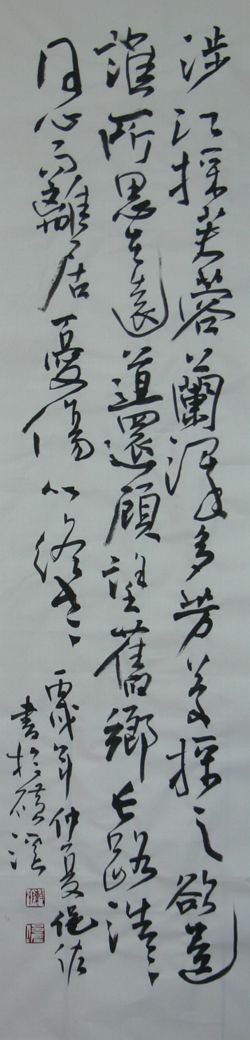 涉江採芙蓉蘭澤多芳草採之欲遺
誰所思在遠道還顧望舊鄉長路浩〻
同心而離居憂傷以終老〻
丙戌年仲夏
書於磻溪